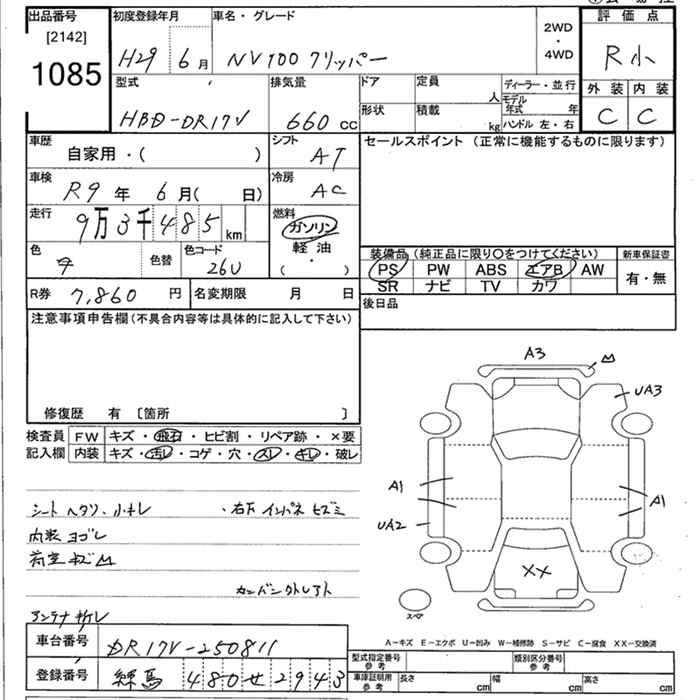 出品番号 初度登録年月 車名・グレード 2WD ・ 4WD 評価点
[2142]
1085 H29 6月 NV100 クリッパー R小
型式 排気量 ドア 定員 人 ディーラー・並行 外装 内装
HBD-DR17V 660 cc 形状 積載 kg モデル年式 年 ハンドル 左・右 C C
車歴 自家用・( ) シフト AT セールスポイント(正常に機能するものに限ります)
車検 R9年 6月( 日) 冷房 AC
走行 9万3千485 km 燃料 ガソリン 軽油 ・ ( )
色 色替 色コード 26U 装備品(純正品に限り○をつけてください) 新車保証書
PS PW ABS エアB AW 有・無
SR ナビ TV カワ
R券 7,860 円 名変期限 月 日 後日品
注意事項申告欄(不具合内容等は具体的に記入して下さい)
修復歴 有 〔箇所 〕
検査員 FW キズ・飛石・ヒビ割・リペア跡・×要
記入欄 内装 キズ・汚レ・コゲ・穴・スレ・キレ・破レ
シートヘタリ、小キレ ・右下インパネ
内装ヨゴレ
荷室キズ
アンテナ
A3
UA3
A1 A1
UA2
XX
スペア
A-キズ E-エクボ U-凹み W-補修跡 S-サビ C-腐食 XX-交換済
車台番号 DR17V-250811 型式指定番号 参考 類別区分番号 参考
登録番号 練馬 480せ2943 車庫証明用 参考 長さ cm 幅 cm 高さ cm